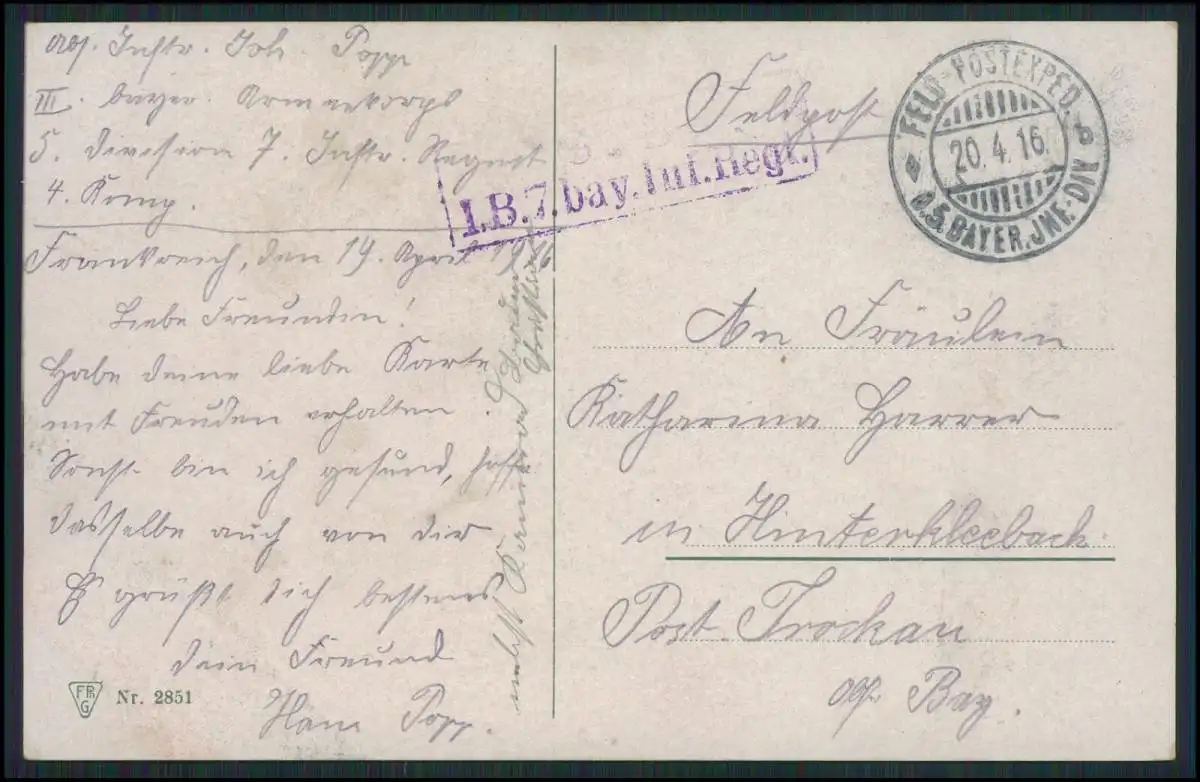 Abs. Inftr. Joh Popp
III. bayer. Armeekorps
5. Division 7. Inftr. Regmt
4. Komp.
Frankreich, den 19. April 1916
Liebe Freundin!
Habe deine liebe Karte
mit Freuden erhalten.
Sonst bin ich gesund, hoffe
dasselbe auch von dir
Es grüßt dich bestens
dein Freund
Hans Popp.
nebst Kamerad
FRG
Nr. 2851
Feldpost
I.B.7.bay.Inf.Regt.
FELD-POSTEXPED.
20.4.16.
D.5.BAYER.JNF.-DIV
An Fräulein
Katharina Harrer
in Hinterkleebach
Post Trockau
Obfr. Bay.